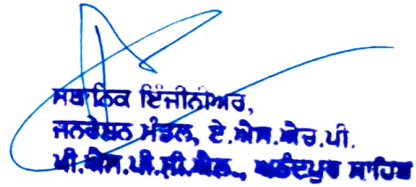 ਸਥਾਨਿਕ ਇੰਜੀਨੀਅਰ,
ਜਨਰੇਸ਼ਨ ਮੰਡਲ, ਏ.ਐਸ.ਐਚ.ਪੀ.
ਪੀ.ਐਸ.ਪੀ.ਸੀ.ਐਲ., ਅਨੰਦਪੁਰ ਸਾਹਿਬ